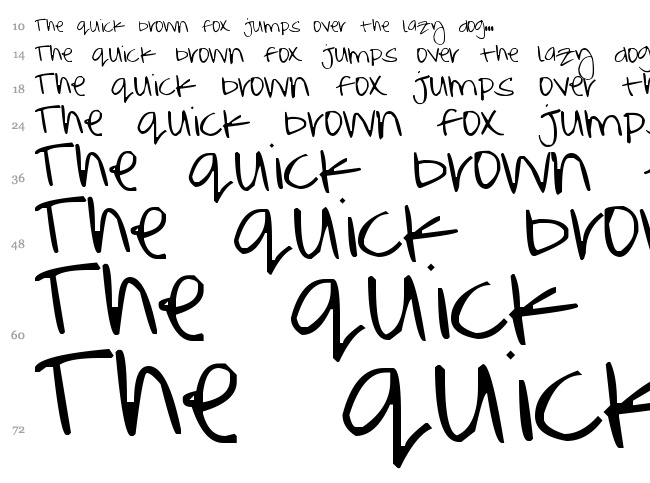 10 The quick brown fox jumps over the lazy dog...
14 The quick brown fox jumps over the lazy dog
18 The quick brown fox jumps over th
24 The quick brown fox jumps
36 The quick brown
48 The quick brow
60 The quick
72 The quick